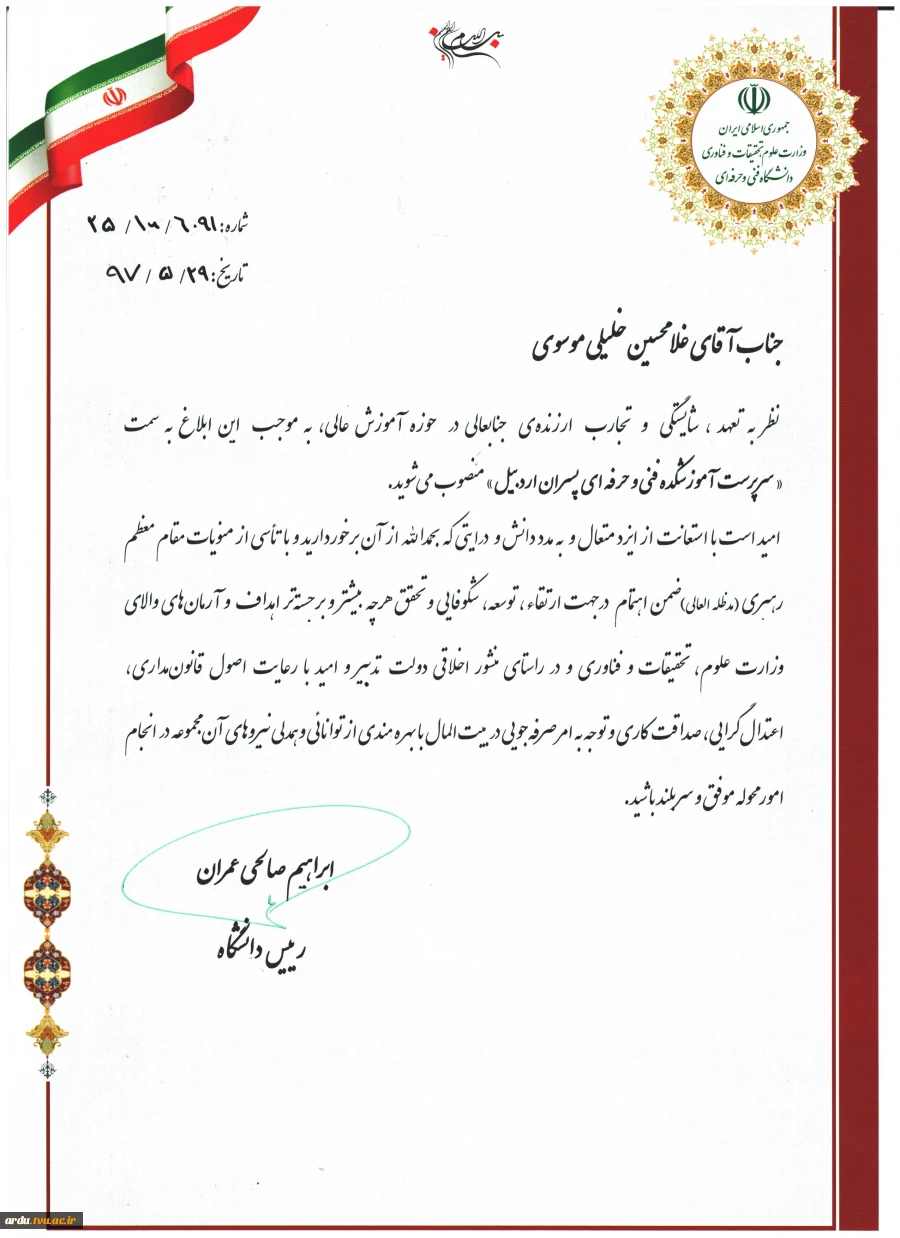 بسم الله الرحمن الرحیم
جمهوری اسلامی ایران
وزارت علوم، تحقیقات و فناوری
دانشگاه فنی و حرفه‌ای
شماره: ۲۵/۱۰/۶۰۹۱
تاریخ: ۹۷/۵/۲۹
جناب آقای غلامحسین خلیلی موسوی
نظر به تعهد ، شایستگی و تجارب ارزنده‌ی جنابعالی در حوزه آموزش عالی، به موجب این ابلاغ به سمت
« سرپرست آموزشکده فنی و حرفه ای پسران اردبیل» منصوب می‌شوید.
امید است با استعانت از ایزد متعال و به مدد دانش و درایتی که بحمدالله از آن برخوردارید و با تأسی از منویات مقام معظم
رهبری (مدظله العالی)ضمن اهتمام درجهت ارتقاء ، توسعه، شکوفایی و تحقق هرچه بیشتر و برجسته‌تر اهداف و آرمان‌های والای
وزارت علوم، تحقیقات و فناوری و در راستای منشور اخلاقی دولت تدبیر و امید با رعایت اصول قانون‌مداری،
اعتدال گرایی، صداقت کاری و توجه به امر صرفه جویی در بیت المال با بهره مندی از توانائی و همدلی نیروهای آن مجموعه در انجام
امور محوله موفق و سربلند باشید.
ابراهیم صالحی عمران
رییس دانشگاه
ardu.tvu.ac.ir